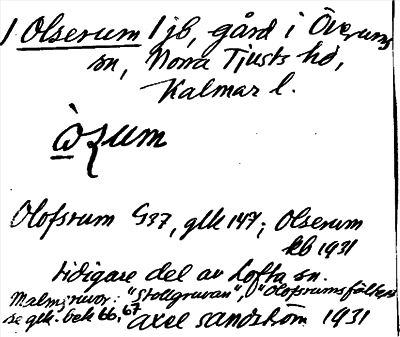 1 Olserum 1 jb, gård i Överums
sn, Norra Tjusts hd,
Kalmar l.
òzum
Olofsrum G37, glk 147; Olserum
kb 1931
tidigare del av Lofta sn.
Malmgruvor: "Stollgruvan", "Olofsrumsfältet"
se glk. besk 66, 67
Axel Sandström 1931